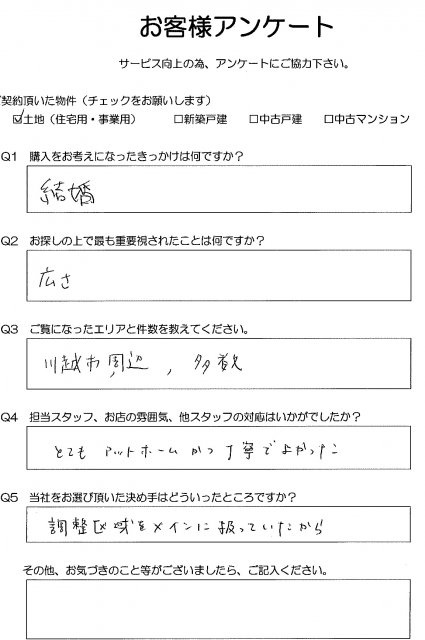 お客様アンケート
サービス向上の為、アンケートにご協力下さい。
契約頂いた物件（チェックをお願いします）
☑土地（住宅用・事業用） □新築戸建 □中古戸建 □中古マンション
Q1 購入をお考えになったきっかけは何ですか？
結婚
Q2 お探しの上で最も重要視されたことは何ですか？
広さ
Q3 ご覧になったエリアと件数を教えてください。
川越市周辺，多数
Q4 担当スタッフ、お店の雰囲気、他スタッフの対応はいかがでしたか？
とても アットホームかつ丁寧でよかった
Q5 当社をお選び頂いた決め手はどういったところですか？
調整区域をメインに扱っていたから
その他、お気づきのこと等がございましたら、ご記入ください。